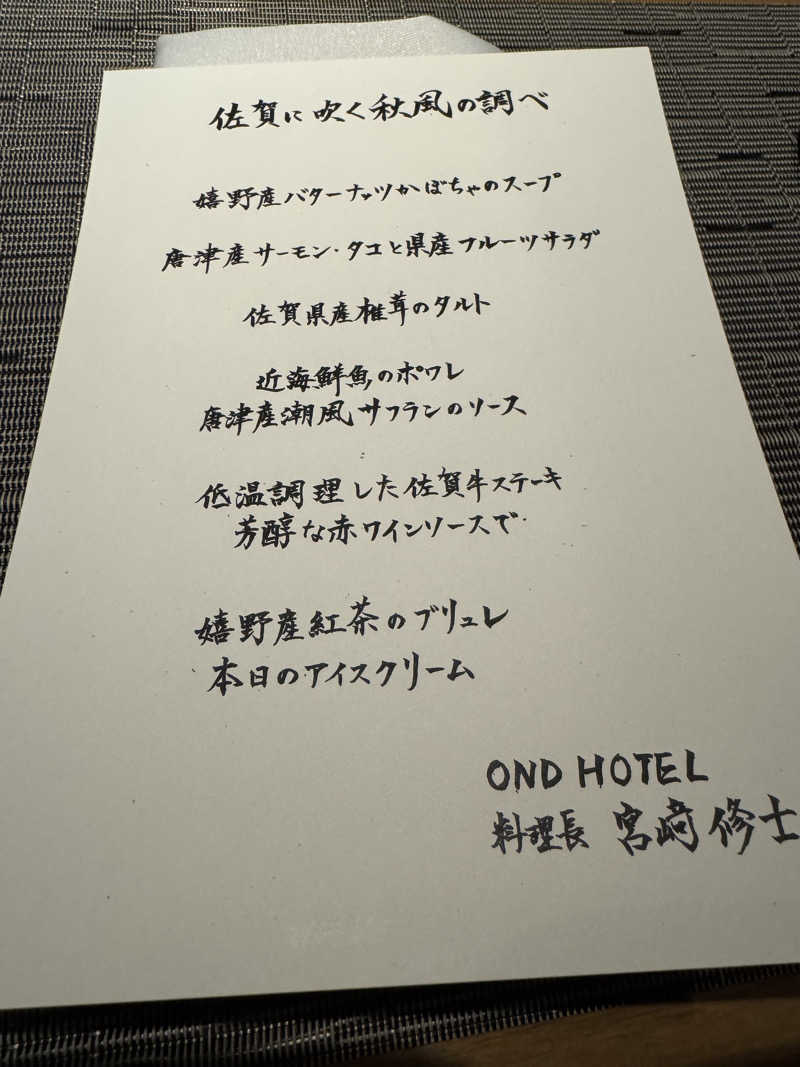 佐賀に吹く秋風の調べ
嬉野産バターナッツかぼちゃのスープ
唐津産サーモン・タコと県産フルーツサラダ
佐賀県産椎茸のタルト
近海鮮魚のポワレ
唐津産潮風サフランのソース
低温調理した佐賀牛ステーキ
芳醇な赤ワインソースで
嬉野産紅茶のブリュレ
本日のアイスクリーム
OND HOTEL
料理長 宮﨑 修士